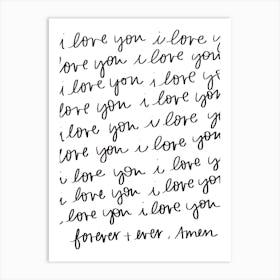 i love you i love y
love you i love you
i love you i love yo
love you i love you
i love you i love yo
love you i love you
i love you i love yo
i love you i love you
love you i love you
forever + ever, Amen